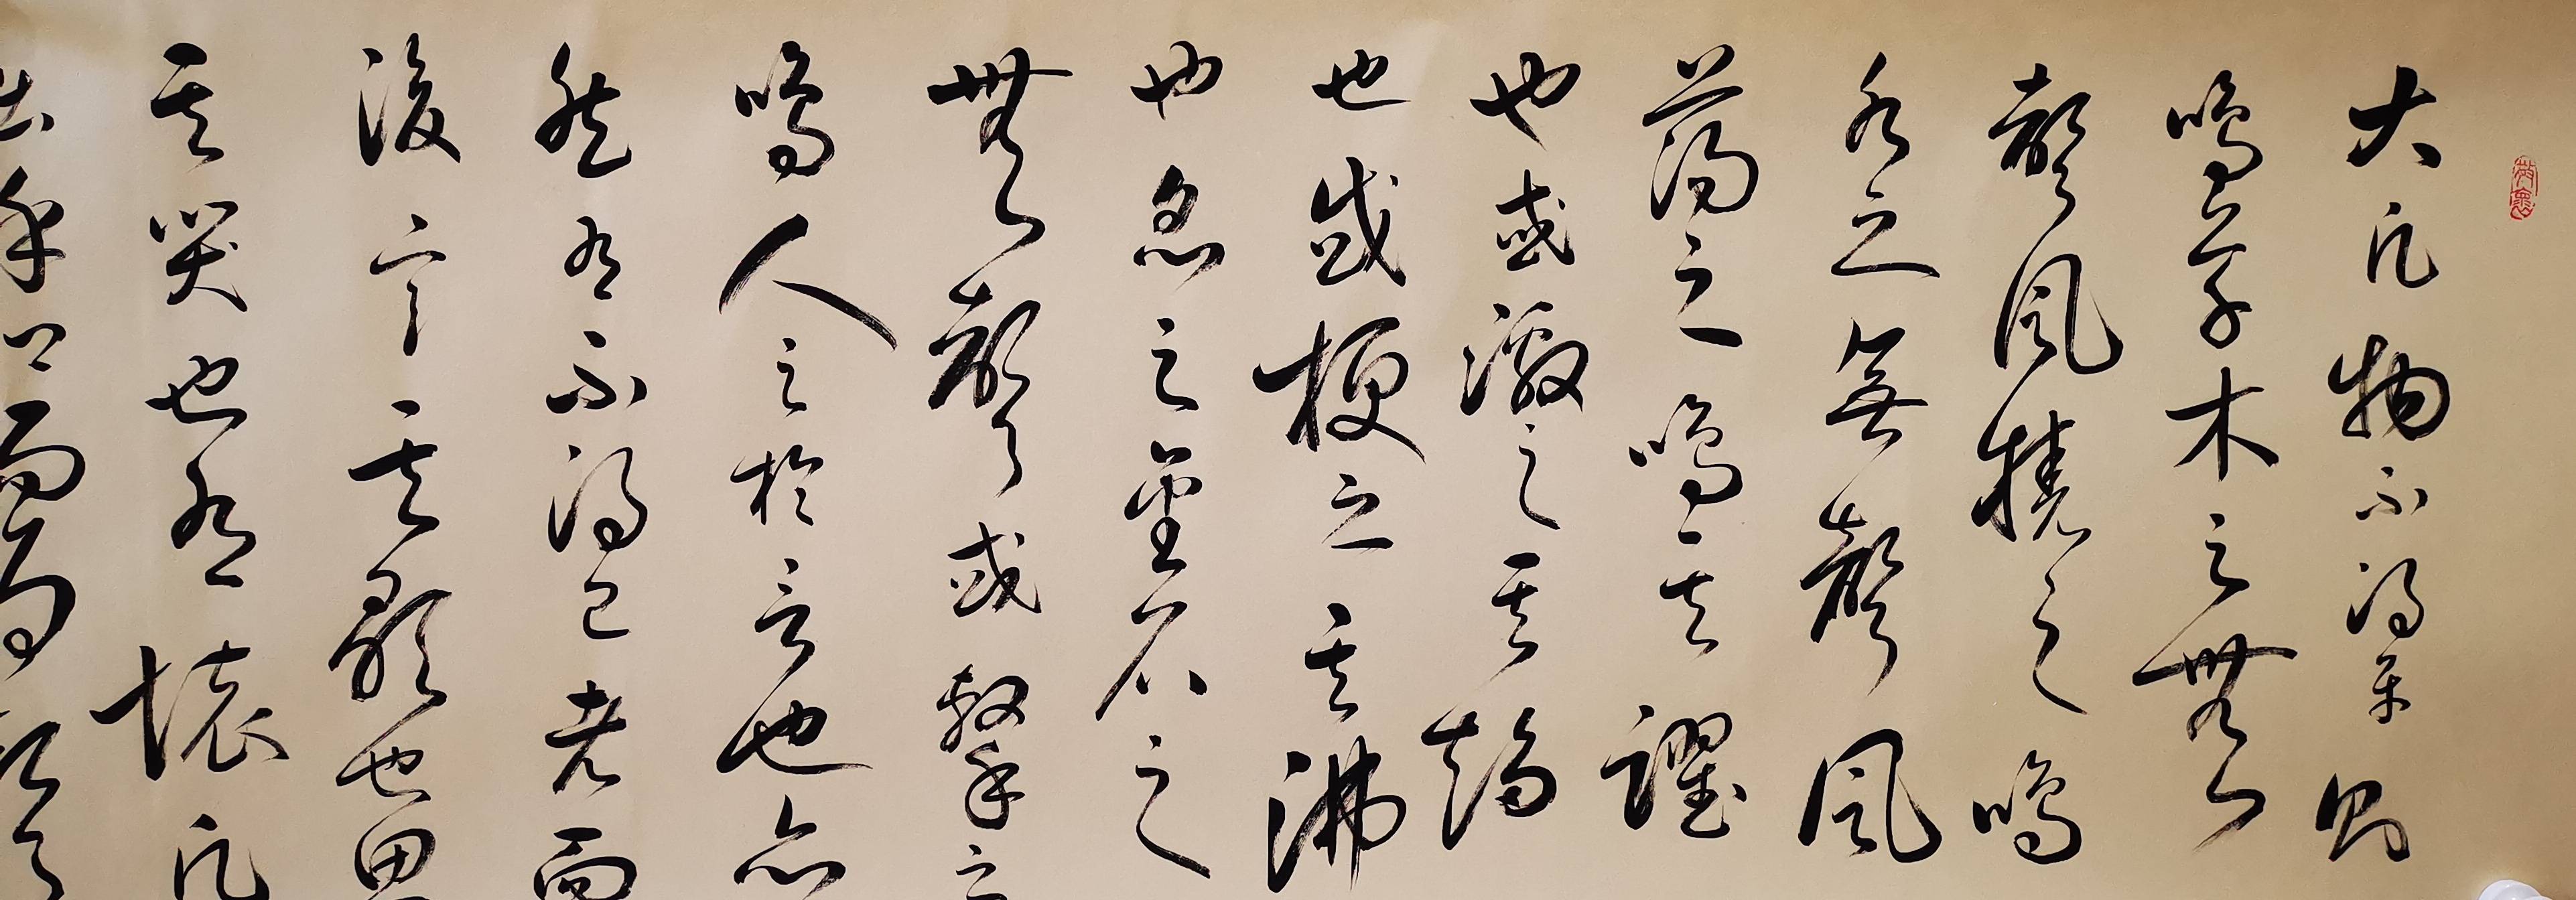 大凡物不得平則
鳴草木之無
聲風撓之鳴
水之無聲風
蕩之鳴其躍
也或激之其趨
也或梗之其沸
也炙之金石之
無聲或擊之
鳴人之於言也亦
然有不得已者而
後言其歌也思
其哭也有懷凡
出乎口而為聲